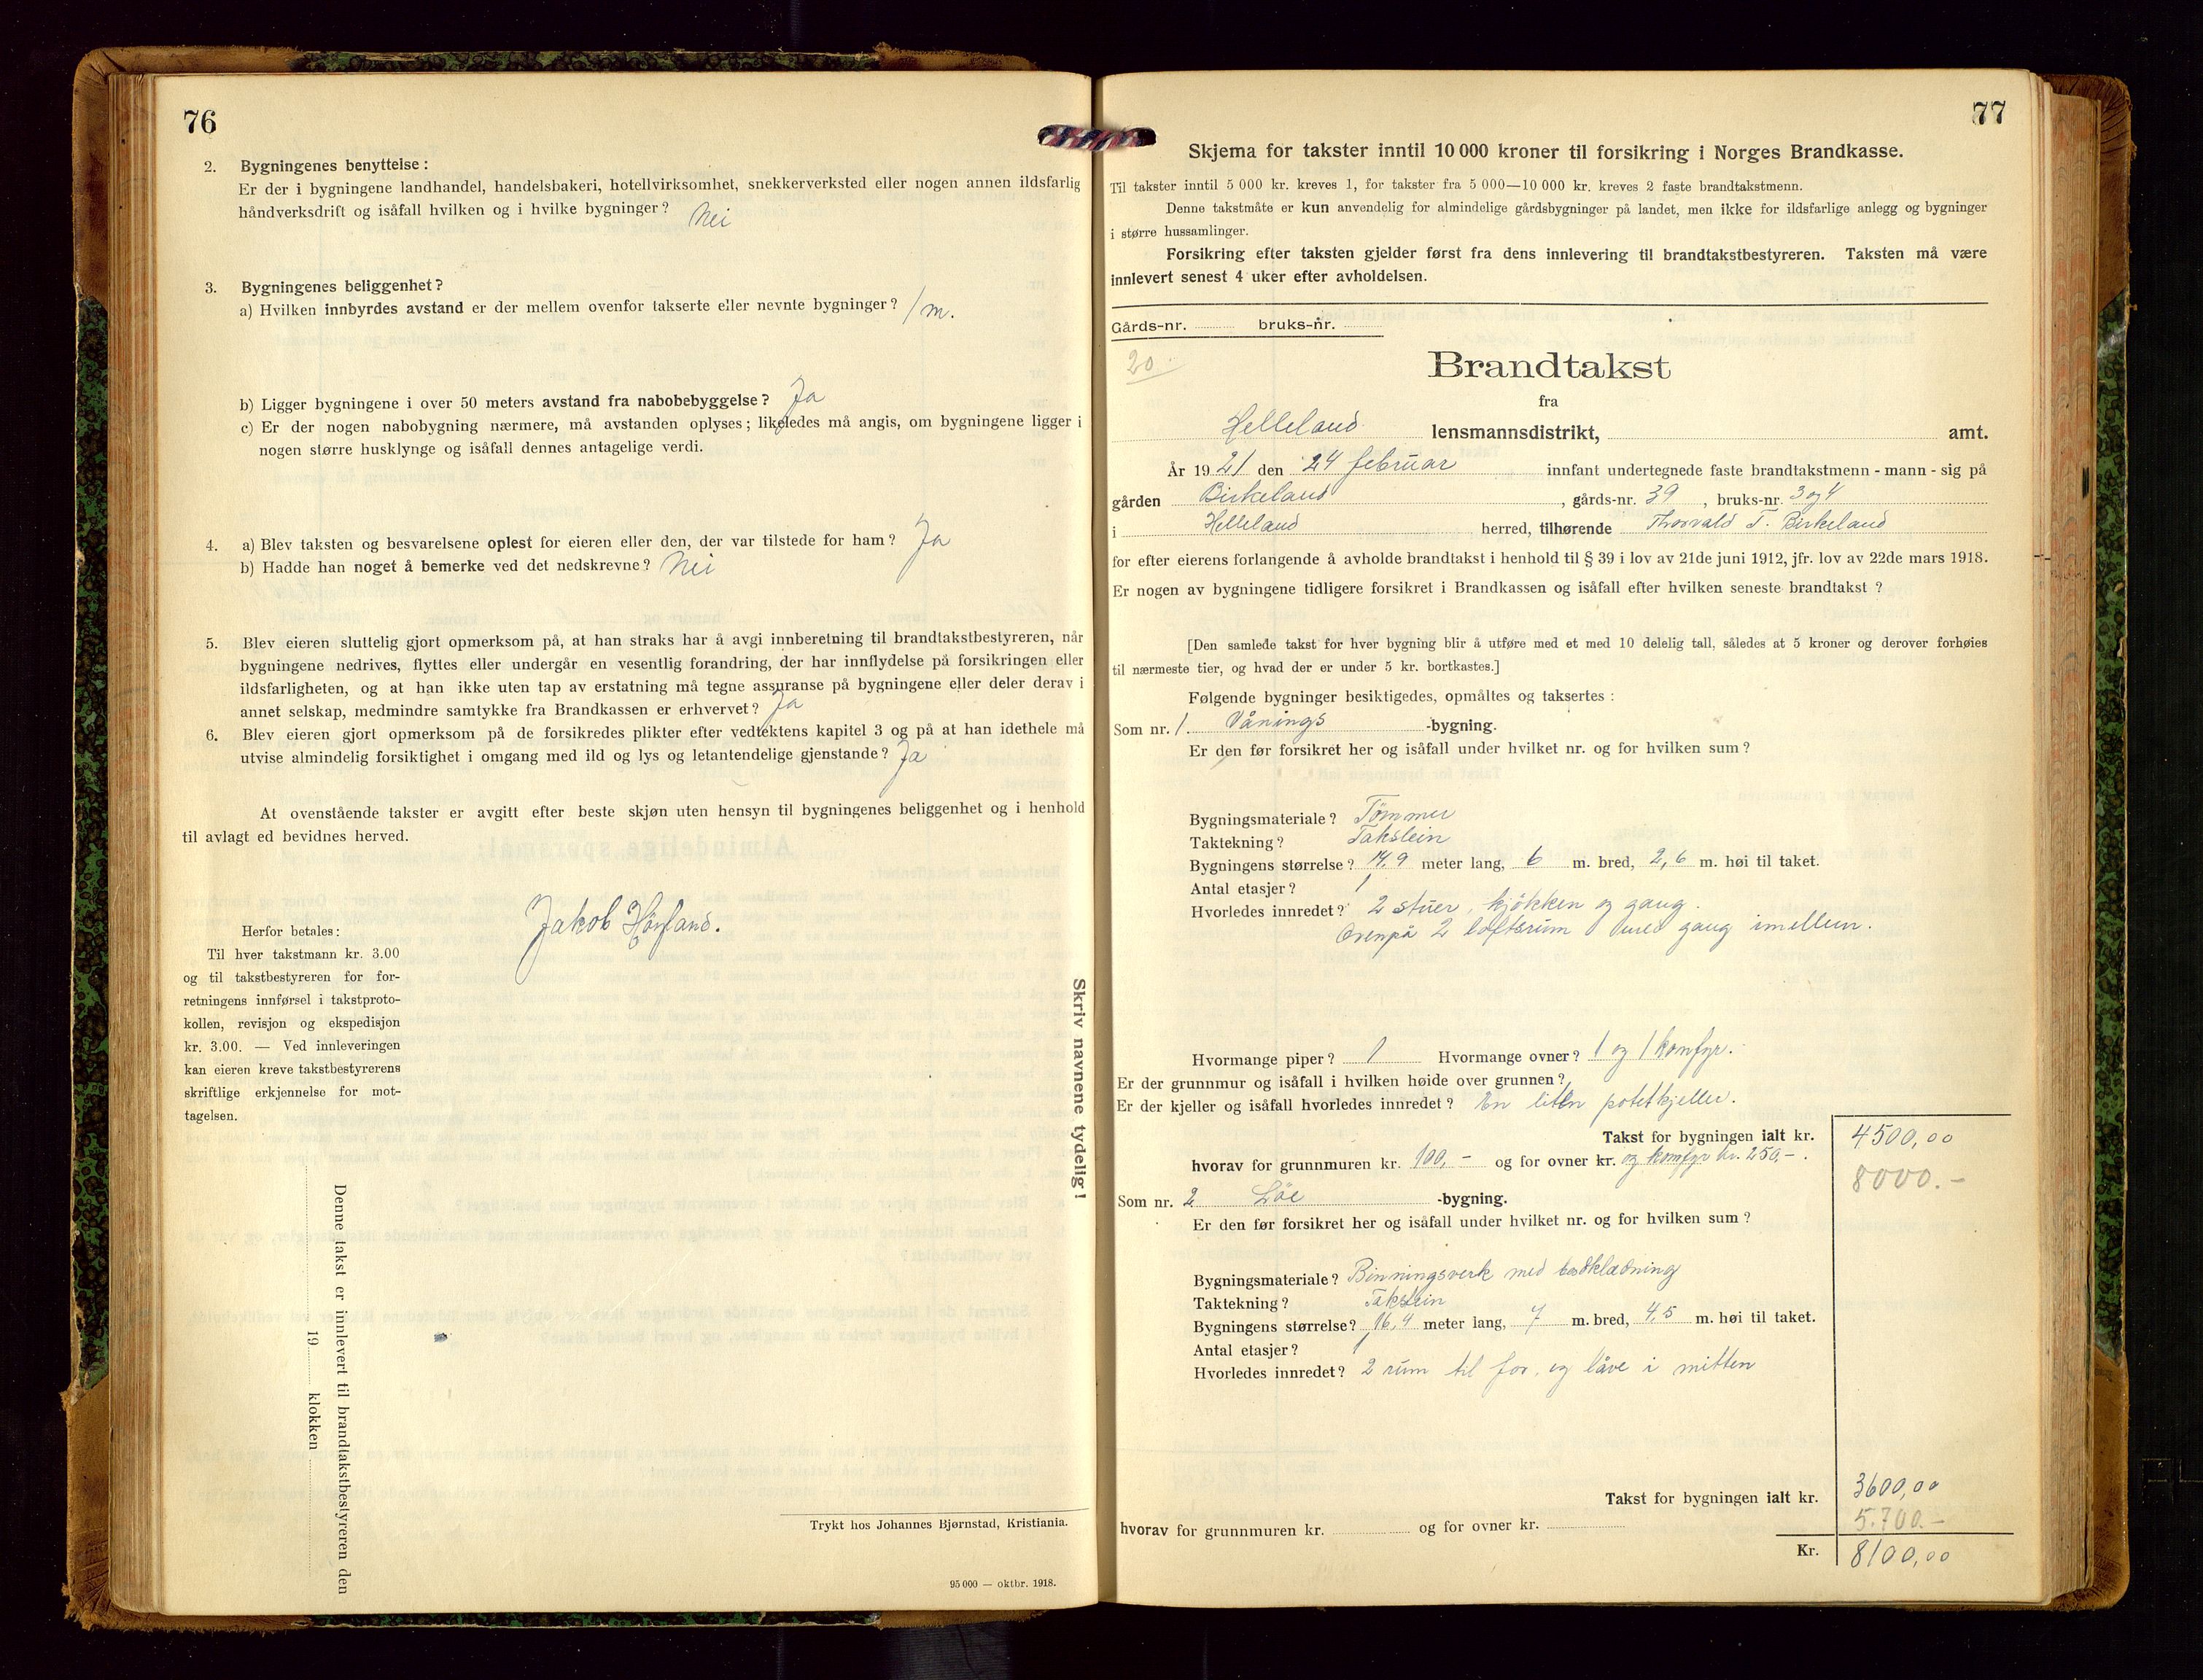 76
2. Bygningenes benyttelse:
Er der i bygningene landhandel, handelsbakeri, hotellvirksomhet, snekkerverksted eller nogen annen ildsfarlig
håndverksdrift og isåfall hvilken og i hvilke bygninger? Nei
3. Bygningenes beliggenhet?
a) Hvilken innbyrdes avstand er der mellem ovenfor takserte eller nevnte bygninger? 1 m.
b) Ligger bygningene i over 50 meters avstand fra nabobebyggelse? Ja
c) Er der nogen nabobygning nærmere, må avstanden oplyses; likeledes må angis, om bygningene ligger i
nogen større husklynge og isåfall dennes antagelige verdi.
4. a) Blev taksten og besvarelsene oplest for eieren eller den, der var tilstede for ham? Ja
b) Hadde han noget å bemerke ved det nedskrevne? Nei
5. Blev eieren sluttelig gjort opmerksom på, at han straks har å avgi innberetning til brandtakstbestyreren, når
bygningene nedrives, flyttes eller undergår en vesentlig forandring, der har innflydelse på forsikringen eller
ildsfarligheten, og at han ikke uten tap av erstatning må tegne assuranse på bygningene eller deler derav i
annet selskap, medmindre samtykke fra Brandkassen er erhvervet? Ja
6. Blev eieren gjort opmerksom på de forsikredes plikter efter vedtektens kapitel 3 og på at han idethele må
utvise almindelig forsiktighet i omgang med ild og lys og letantendelige gjenstande? Ja
At ovenstående takster er avgitt efter beste skjøn uten hensyn til bygningenes beliggenhet og i henhold
til avlagt ed bevidnes herved.
Jakob
Herfor betales:
Til hver takstmann kr. 3.00
og til takstbestyreren for for-
retningens innførsel i takstproto-
kollen, revisjon og ekspedisjon
kr. 3.00. — Ved innleveringen
kan eieren kreve takstbestyrerens
skriftlige erkjennelse for mot-
tagelsen.
Skriv navnene tydelig!
Denne takst er innlevert til brandtakstbestyreren den
19 klokken
Trykt hos Johannes Bjørnstad, Kristiania.
95 000 — oktbr. 1918.
77
Skjema for takster inntil 10 000 kroner til forsikring i Norges Brandkasse.
Til takster inntil 5 000 kr. kreves 1, for takster fra 5 000—10 000 kr. kreves 2 faste brandtakstmenn.
Denne takstmåte er kun anvendelig for almindelige gårdsbygninger på landet, men ikke for ildsfarlige anlegg og bygninger
i større hussamlinger.
Forsikring efter taksten gjelder først fra dens innlevering til brandtakstbestyreren. Taksten må være
innlevert senest 4 uker efter avholdelsen.
Gårds-nr. bruks-nr.
20
Brandtakst
fra
Helleland lensmannsdistrikt, amt.
År 1921 den 24 februar innfant undertegnede faste brandtakstmenn - mann - sig på
gården Birkeland, gårds-nr. 39, bruks-nr. 3 og 4
i Helleland herred, tilhørende Thorvald T. Birkeland
for efter eierens forlangende å avholde brandtakst i henhold til § 39 i lov av 21de juni 1912, jfr. lov av 22de mars 1918.
Er nogen av bygningene tidligere forsikret i Brandkassen og isåfall efter hvilken seneste brandtakst?
[Den samlede takst for hver bygning blir å utføre med et med 10 delelig tall, således at 5 kroner og derover forhøies
til nærmeste tier, og hvad der er under 5 kr. bortkastes.]
Følgende bygninger besiktigedes, opmåltes og taksertes:
Som nr. 1 Vånings -bygning.
Er den før forsikret her og isåfall under hvilket nr. og for hvilken sum?
Bygningsmateriale? Tömmer
Taktekning? Takstein
Bygningens størrelse? 14,9 meter lang, 6 m. bred, 2,6 m. høi til taket.
Antal etasjer? 1
Hvorledes innredet? 2 stuer, kjökken og gang.
Ovenpå 2 loftsrum med gang imellem.
Hvormange piper? 1 Hvormange ovner? 1 og 1 komfyr.
Er der grunnmur og isåfall i hvilken høide over grunnen?
Er der kjeller og isåfall hvorledes innredet? En liten potetkjeller.
Takst for bygningen ialt kr. 4500,00
hvorav for grunnmuren kr. 100,- og for ovner kr. og komfyr kr. 250,-.
8000.-
Som nr. 2 Löe -bygning.
Er den før forsikret her og isåfall under hvilket nr. og for hvilken sum?
Bygningsmateriale? Binningsverk med bordklædning
Taktekning? Takstein
Bygningens størrelse? 16,4 meter lang, 7 m. bred, 4,5 m. høi til taket.
Antal etasjer? 1
Hvorledes innredet? 2 rum til for, og låve i mitten
Takst for bygningen ialt kr. 3600,00
5.700.-
hvorav for grunnmuren kr. og for ovner kr.
Kr. 8100,00